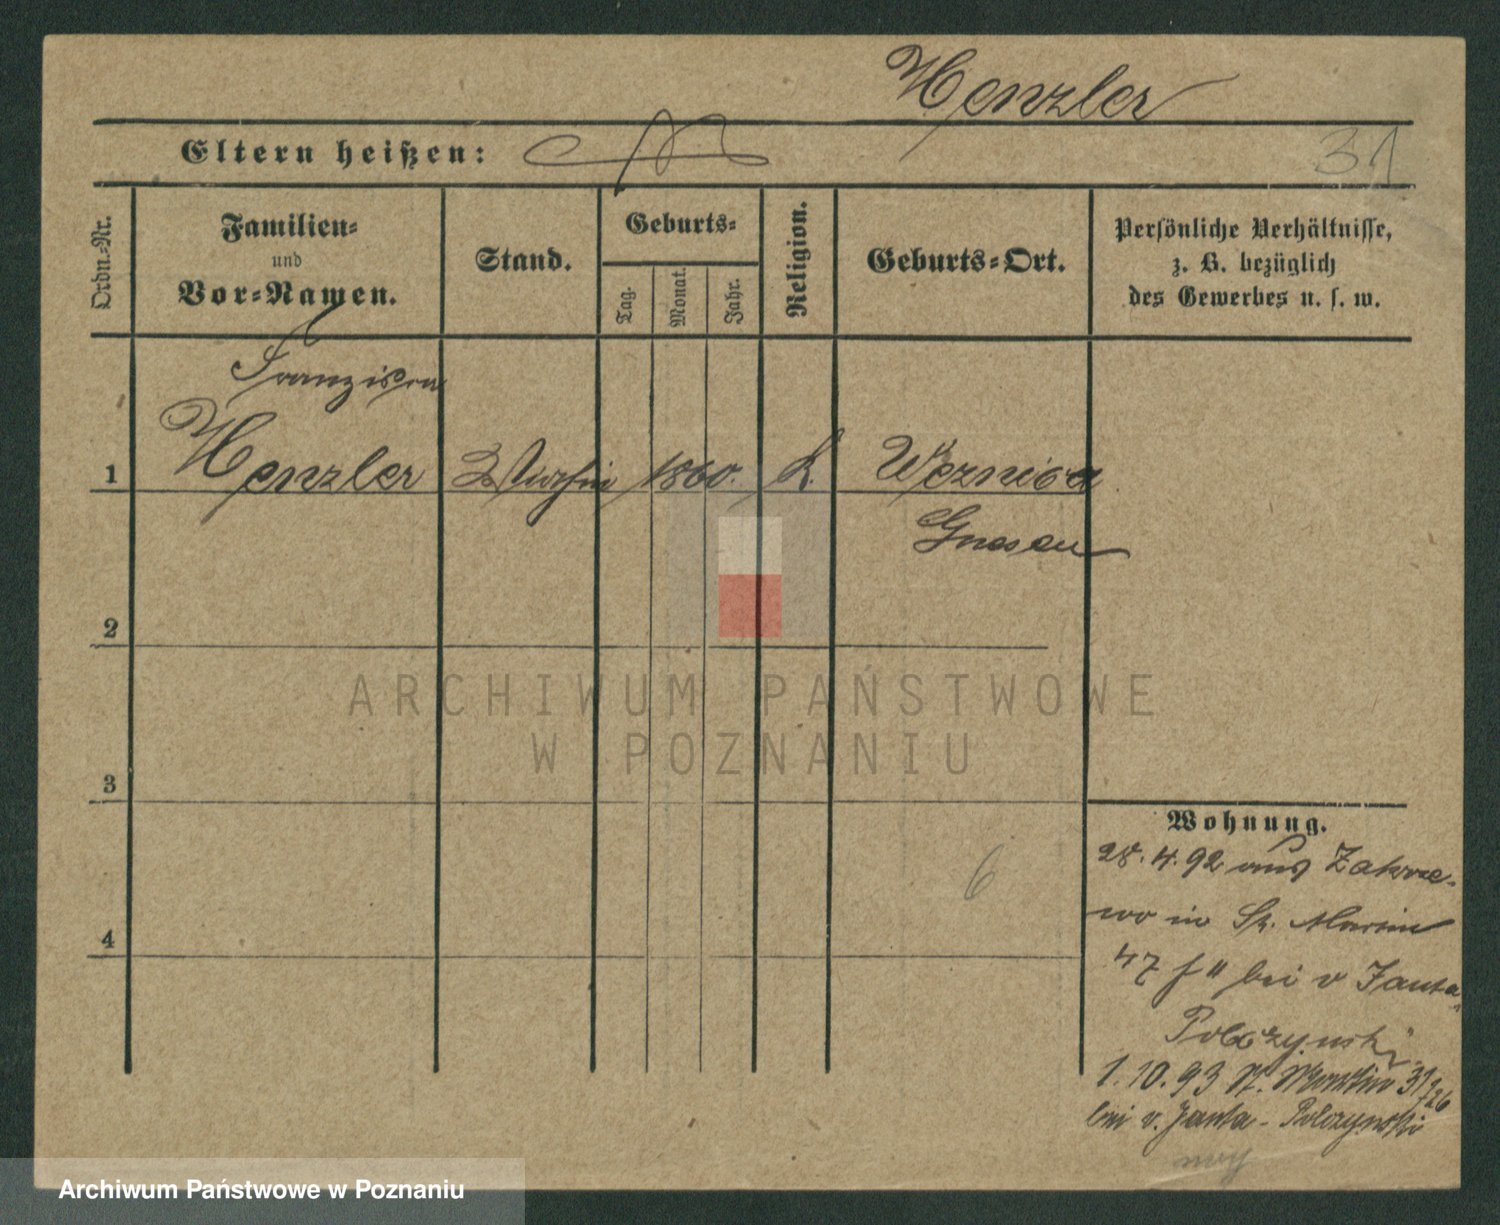 Henzler
Eltern heißen:
31
Ordn.-Nr.
Familien-
und
Vor-Namen.
Stand.
Geburts-
Tag.
Monat.
Jahr.
Religion.
Geburts-Ort.
Persönliche Verhältnisse,
z. B. bezüglich
des Gewerbes u. s. w.
Franziska
1 Henzler 1860. k.
Gnesen
2
ARCHIWUM PAŃSTWOWE
W POZNANIU
3
Wohnung.
28. 4. 92 aus Zakrze-
wo in St. Martin
47 f II bei v Janta
Polczynski
6
4
1. 10. 93 St. Martin 31/26
bei v. Janta - Polczynski
Archiwum Państwowe w Poznaniu